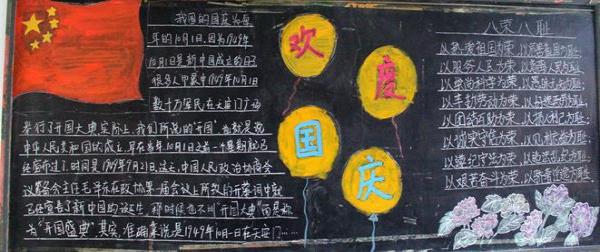 我国的国庆为每
年的10月1日,因为1949年
10月1日是新中国成立的日子
很多人只知1949年10月1日
数十万军民,在天安门广场
举行了开国大典实际上,我们所说的“开国”也就是说
中华人民共和国的成立,早在当年10月1日之前一个星期就已
经宣布过了.时间是1949年9月21日,这之,中国人民政治协商会
议筹备会主任毛泽东在政协第一届会议上所致的开幕词中就
已经宣告了新中国的诞生,那时候也不叫“开国大典”而是称
为“开国盛典”其实,准确来说是1949年10月一日在天安门……
欢
度
国
庆
八荣八耻
以热爱祖国为荣,以危害祖国为耻,
以服务人民为荣,以背离人民为耻
以崇尚科学为荣,以愚昧无知为耻,
以辛勤劳动为荣,以好逸恶劳为耻,
以团结互助为荣,以损人利己为耻
以诚实守信为荣,以见利忘义为耻,
以遵纪守法为荣,以违法乱纪为耻,
以艰苦奋斗为荣,以骄奢淫逸为耻,